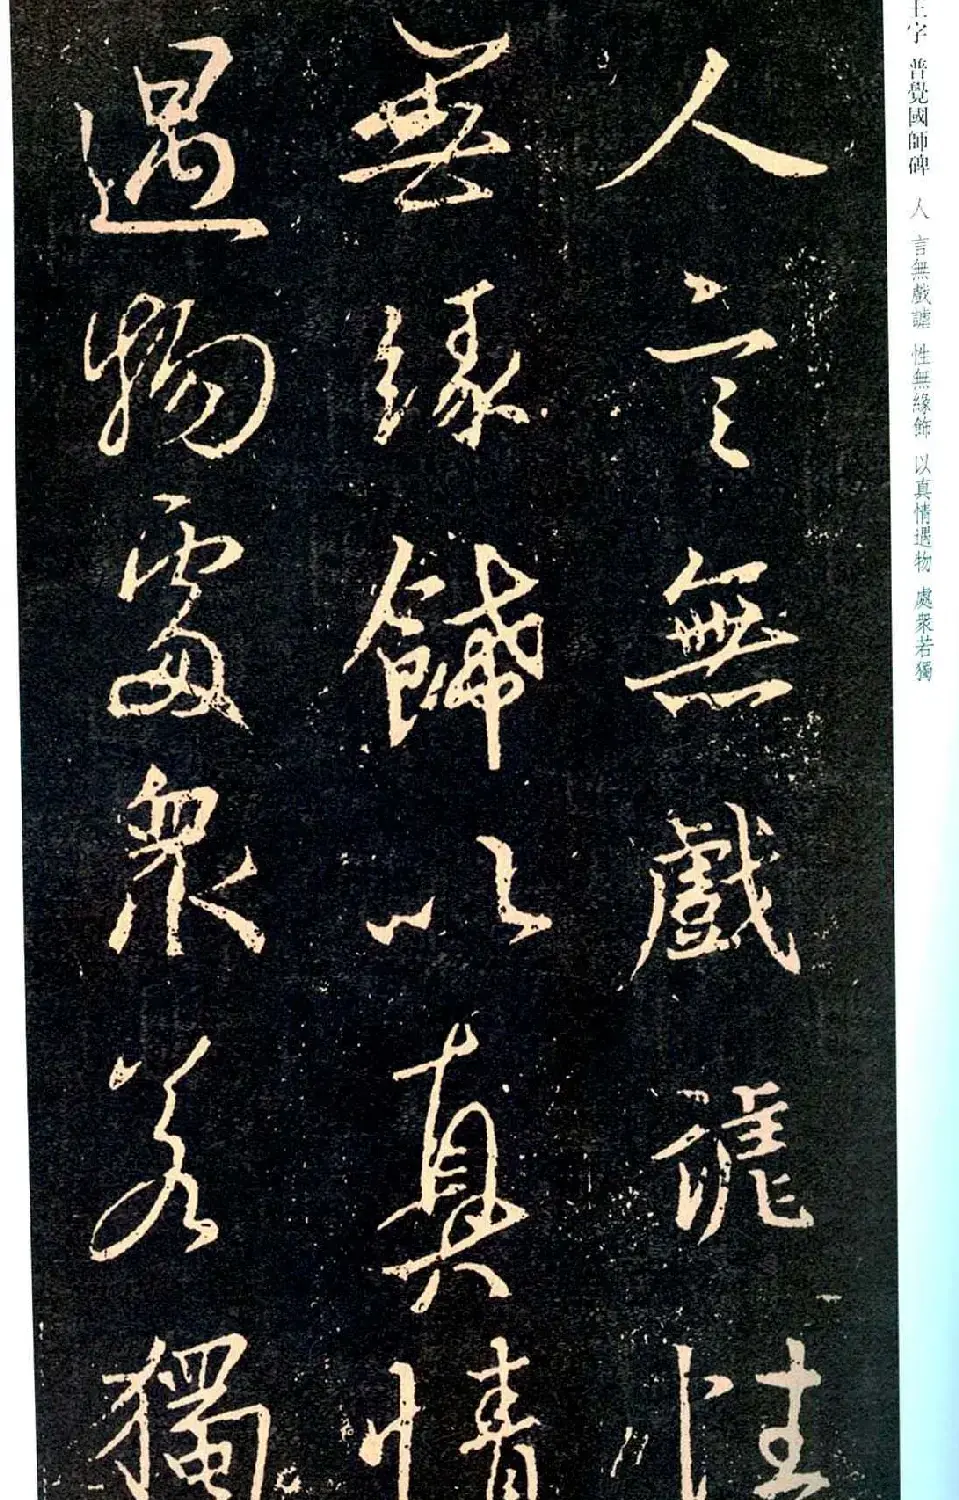 王字 普覺國師碑 人 言無戲謔 性無緣飾 以真情遇物 處衆若獨
人言無戲謔性
無緣飾以真情
遇物處衆若獨